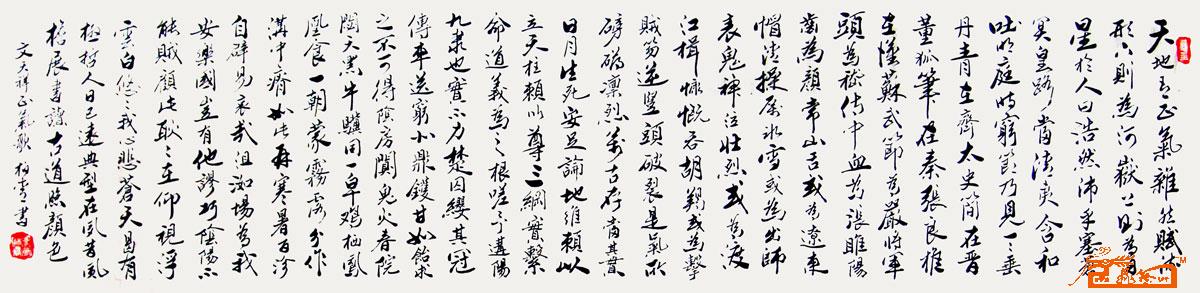 天地有正氣雜然賦流
形下則為河嶽上則為日
星於人曰浩然沛乎塞蒼
冥皇路當清夷含和
吐明庭時窮節乃見一一垂
丹青在齊太史簡在晉
董狐筆在秦張良椎
在漢蘇武節為嚴將軍
頭為嵇侍中血為張睢陽
齒為顏常山舌或為遼東
帽清操厲冰雪或為出師
表鬼神泣壯烈或為渡
江楫慷慨吞胡羯或為擊
賊笏逆豎頭破裂是氣所
磅礴凜烈萬古存當其貫
日月生死安足論地維賴以
立天柱賴以尊三綱實繫
命道義為之根嗟予遘陽
九隸也實不力楚囚纓其冠
傳車送窮北鼎鑊甘如飴求
之不可得陰房闃鬼火春院
閟天黑牛驥同一皁雞栖鳳
凰食一朝蒙霧露分作
溝中瘠如此再寒暑百沴
自辟易哀哉沮洳場為我
安樂國豈有他謬巧陰陽不
能賊顧此耿々在仰視浮
雲白悠々我心悲蒼天曷有
極哲人日已遠典型在夙昔風
檐展書讀古道照顏色
文天祥正氣歌 柏雲書